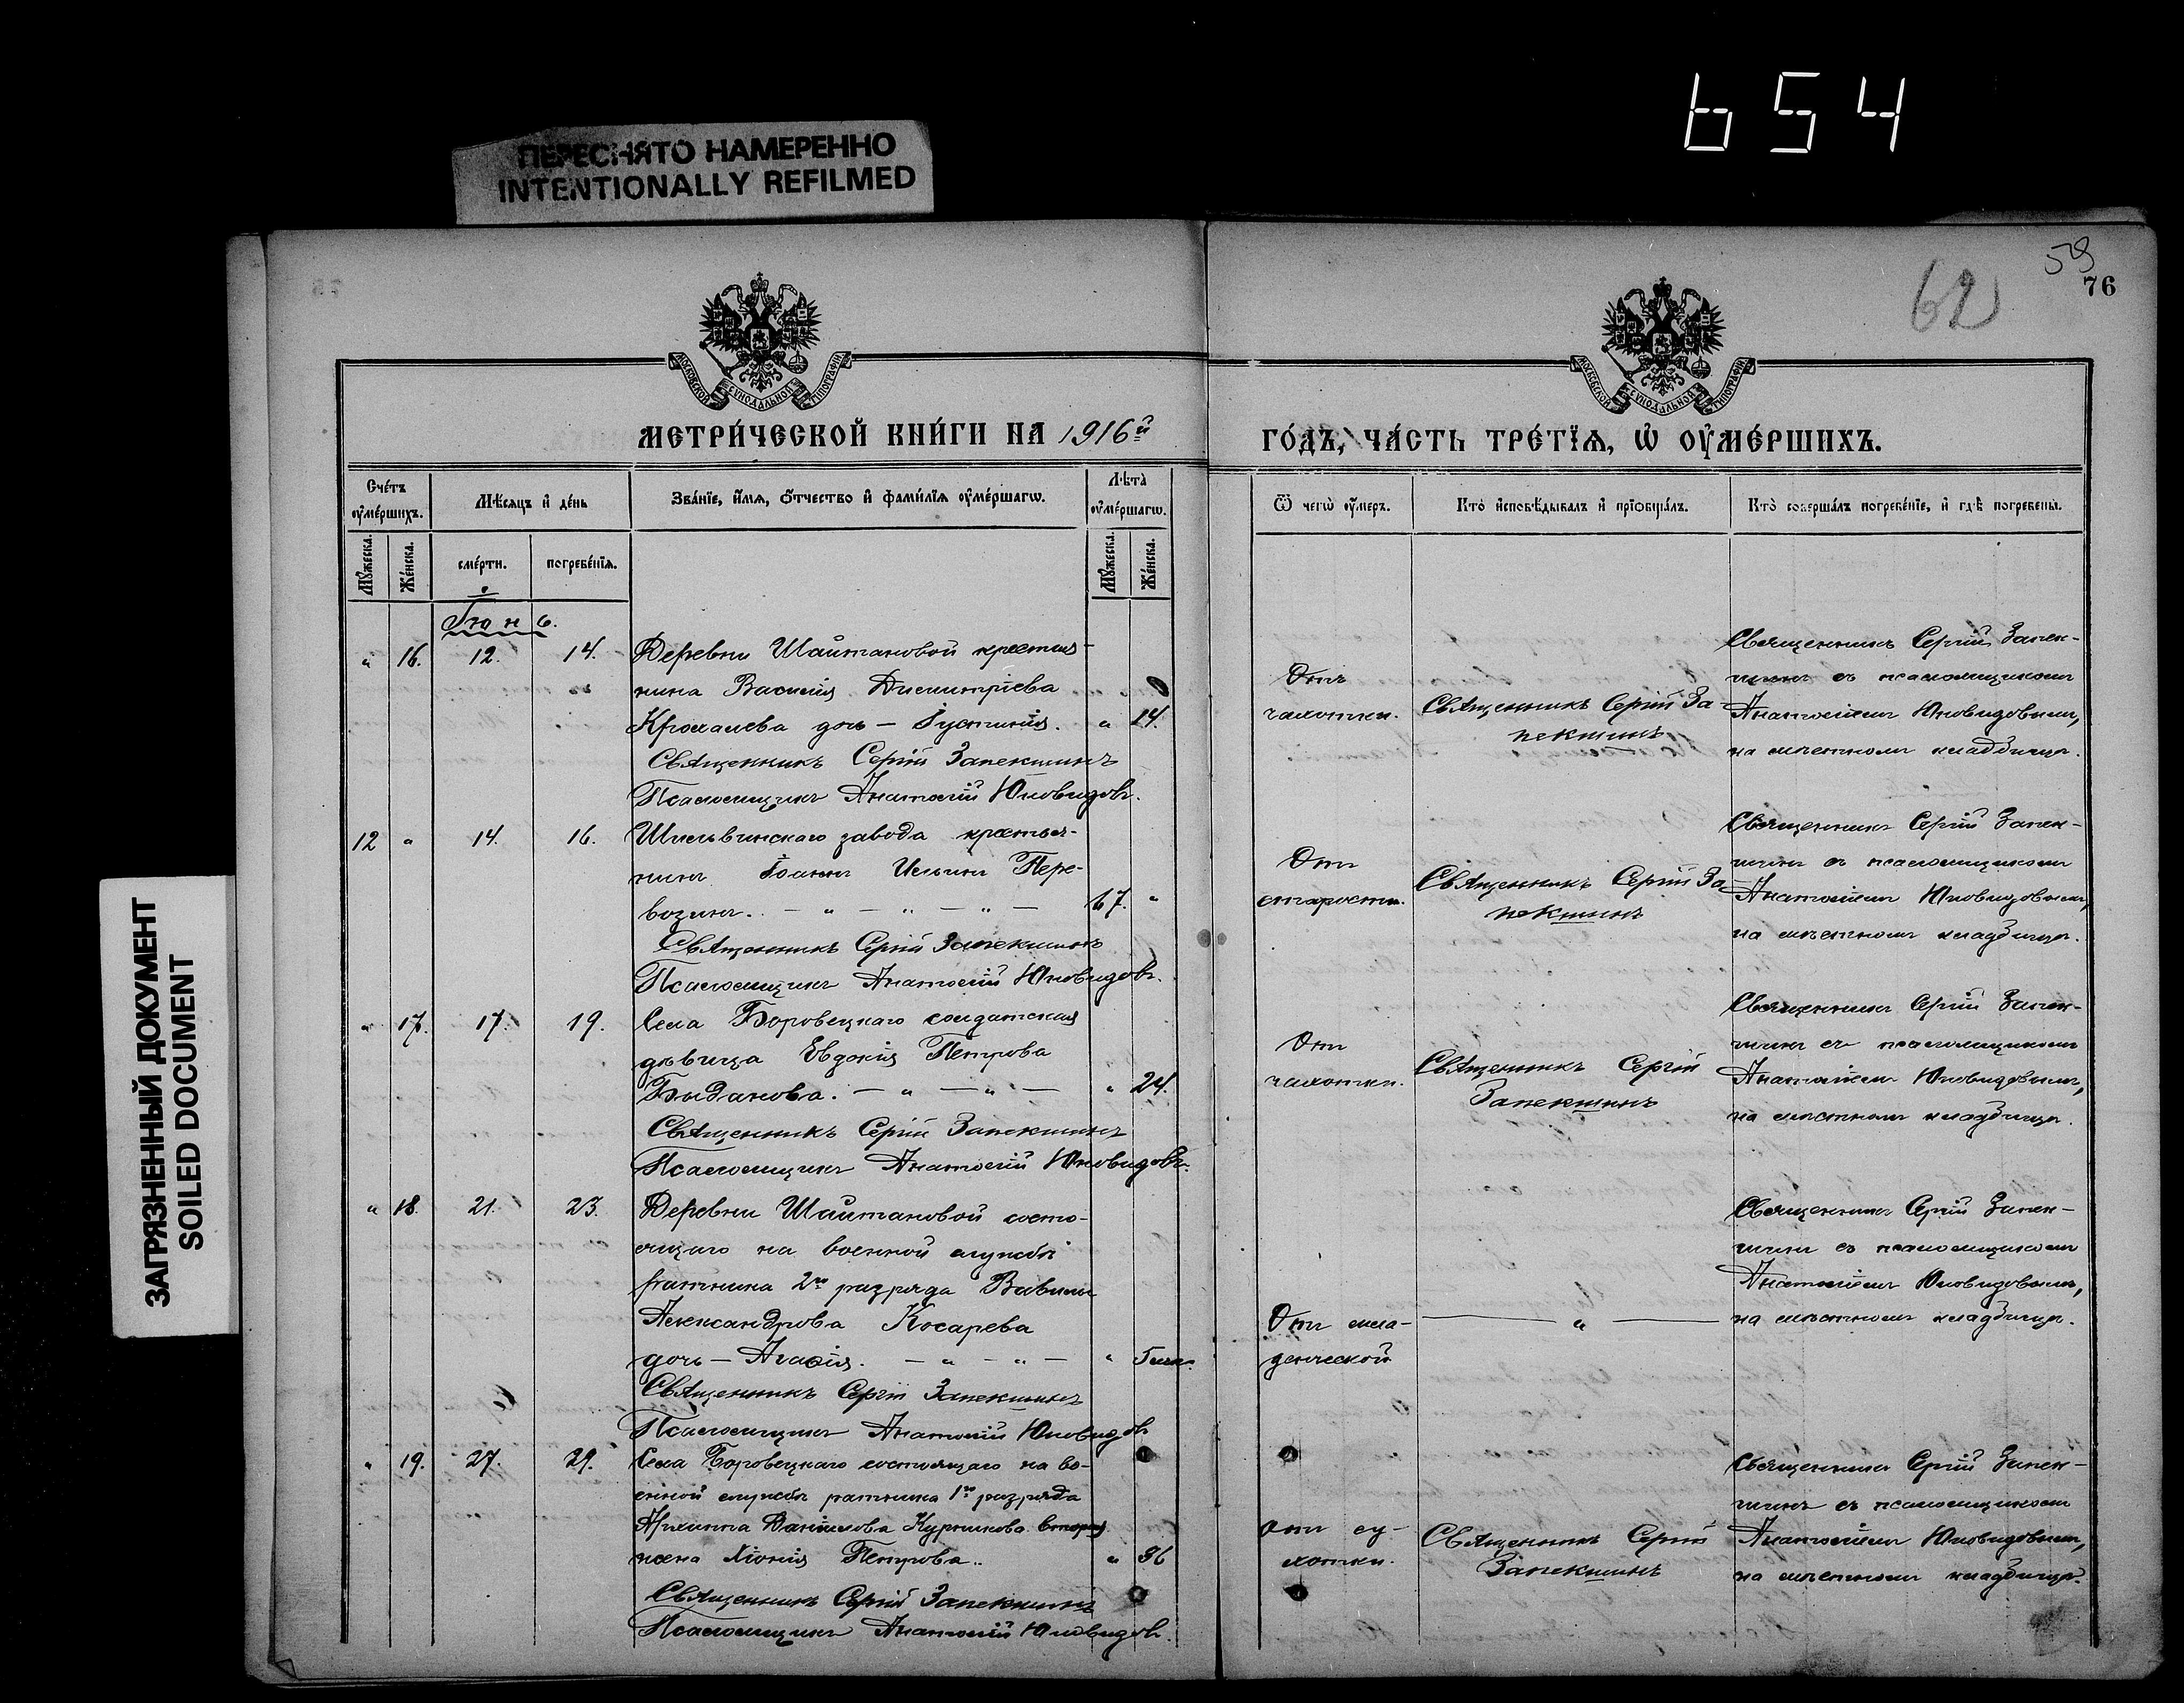 654
ПЕРЕСНЯТО НАМЕРЕННО
INTENTIONALLY REFILMED
ЗАГРЯЗНЕННЫЙ ДОКУМЕНТ
SOILED DOCUMENT
59
62
76
МОСКОВСКОЙ СѴНОДАЛЬНОЙ ТИПОГРАФІИ
МОСКОВСКОЙ СѴНОДАЛЬНОЙ ТИПОГРАФІИ
МЕТРИ́ЧЕСКОЙ КНИ́ГИ НА 1916й
ГО́ДЪ, ЧА́СТЬ ТРЕ́ТЇѦ, Ѡ҆ ОУ҆МЕ́РШИХЪ.
Сче́тъ
оу҆ме́ршихъ.
Мѣ́сяцъ и҆ де́нь
Зва́нїе, и҆́мѧ, ѻ҆́тчество и҆ фами́лїѧ оу҆ме́ршагѡ.
Лѣ̀та
оу҆ме́ршагѡ.
Ѿ чегѡ̀ оу҆́меръ.
Кто̀ и҆сповѣ́дывалъ и҆ прїѡбща́лъ.
Кто̀ соверша́лъ погребе́нїе, и҆ гдѣ̀ погребены̀.
Мꙋ́жеска.
Же́нска.
сме́рти.
погребе́нїѧ.
Мꙋ́жеска.
Же́нска.
Іюнь.
" 16. 12. 14. Деревни Шайтановой крестья-
нина Василія Димитріева
Крохалева дочь — Іустинія. " 14.
Священникъ Сергій Запекшинъ
Псаломщикъ Анатолій Юновидовъ.
Отъ
чахотки.
Священникъ Сергій За-
пекшинъ
Священникъ Сергій Запек-
шинъ съ псаломщикомъ
Анатоліемъ Юновидовымъ,
на мѣстномъ кладбищѣ.
12 " 14. 16. Шильвинскаго завода крестья-
нинъ Іоаннъ Ильинъ Пере-
возинъ. — " — " — " — 67. "
Священникъ Сергій Запекшинъ
Псаломщикъ Анатолій Юновидовъ.
Отъ
старости.
Священникъ Сергій За-
пекшинъ
Священникъ Сергій Запек-
шинъ съ псаломщикомъ
Анатоліемъ Юновидовымъ,
на мѣстномъ кладбищѣ.
" 17. 17. 19. Села Боровецкаго солдатская
дѣвица Евдокія Петрова
Быданова. — " — " — " 24.
Священникъ Сергій Запекшинъ
Псаломщикъ Анатолій Юновидовъ.
Отъ
чахотки.
Священникъ Сергій
Запекшинъ
Священникъ Сергій Запек-
шинъ съ псаломщикомъ
Анатоліемъ Юновидовымъ,
на мѣстномъ кладбищѣ.
" 18. 21. 23. Деревни Шайтановой состо-
ящаго на военной службѣ
ратника 2го разряда Вавилы
Александрова Косарева
дочь — Агафія. — " — " — " 5 мѣс.
Священникъ Сергій Запекшинъ
Псаломщикъ Анатолій Юновидовъ
Отъ мла-
денческой
— " —
Священникъ Сергій Запек-
шинъ съ псаломщикомъ
Анатоліемъ Юновидовымъ,
на мѣстномъ кладбищѣ.
" 19. 27. 29. Села Боровецкаго состоящаго на во-
енной службѣ ратника 1го разряда
Данилова
жена Хіонія Петрова.. " 36
Священникъ Сергій Запекшинъ
Псаломщикъ Анатолій Юновидовъ.
Отъ су-
хотки.
Священникъ Сергій
Запекшинъ
Священникъ Сергій Запек-
шинъ съ псаломщикомъ
Анатоліемъ Юновидовымъ,
на мѣстномъ кладбищѣ.